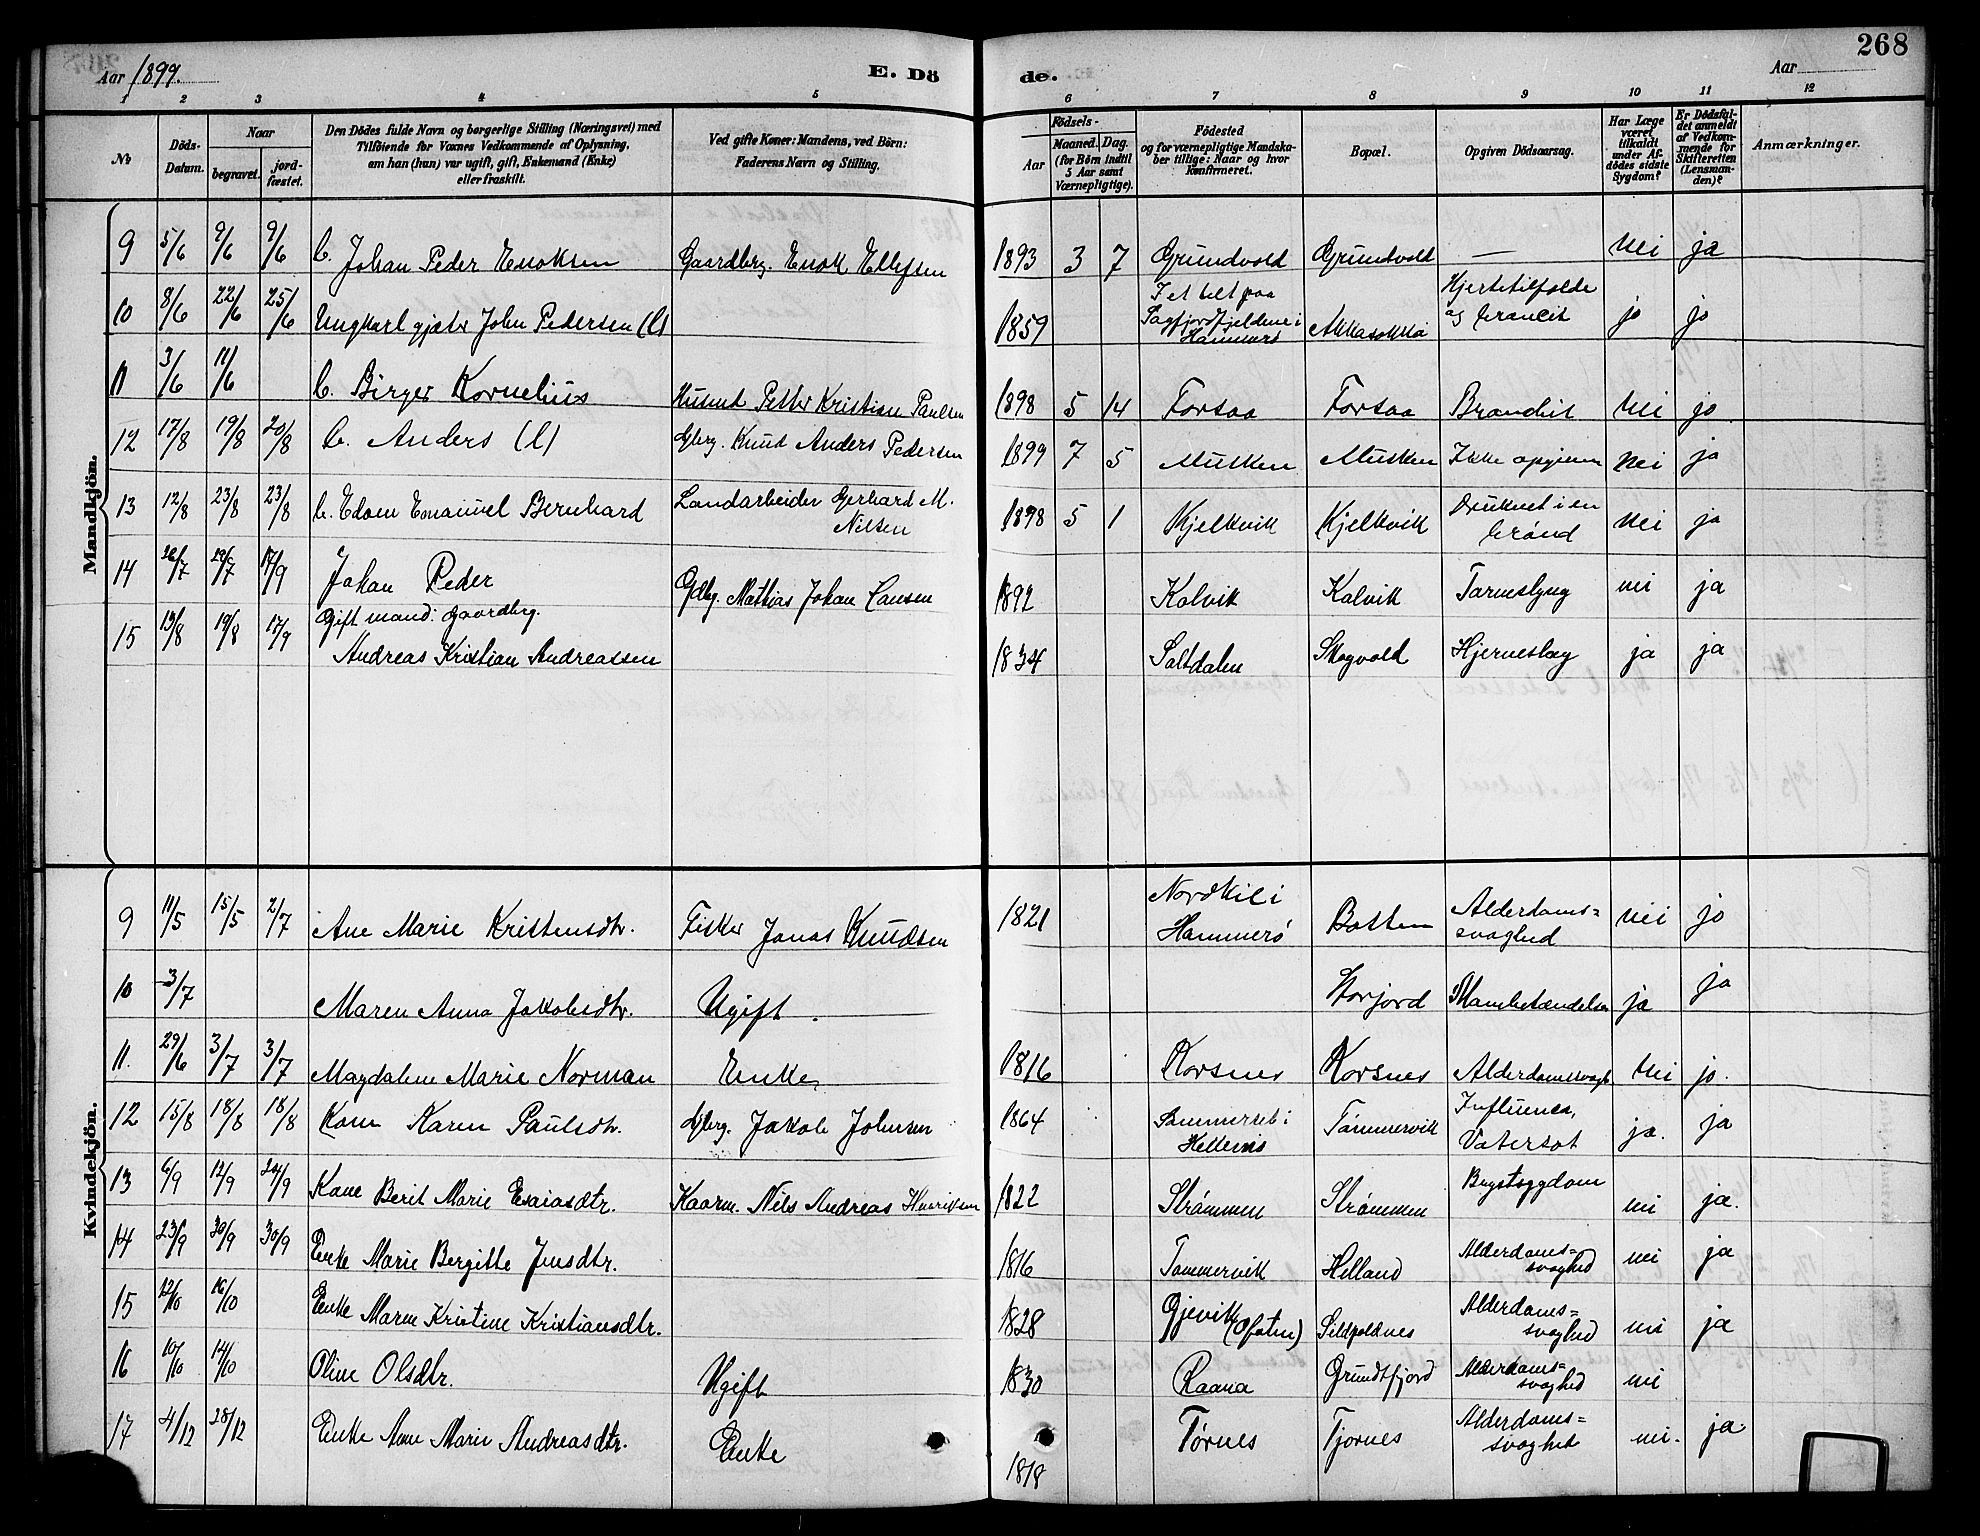 268
Aar 1899.
E. Dö
de.
Aar
1 2 3 4 5 6 7 8 9 10 11 12
No
Döds-Datum.
Naar
begravet.
jord-fæstet.
Den Dödes fulde Navn og borgerlige Stilling (Næringsvei) med
Tilföiende for Voxnes Vedkommende af Oplysning,
om han (hun) var ugift, gift, Enkemand (Enke)
eller fraskilt.
Ved gifte Koner: Mandens, ved Börn:
Faderens Navn og Stilling.
Födsels-
Aar
Maaned. Dag.
(for Börn indtil
5 Aar samt
Værnepligtige).
Födested
og for værnepligtige Mandska-
ber tillige: Naar og hvor
konfirmeret.
Bopæl.
Opgiven Dödsaarsag.
Har Læge
været
tilkaldt
under Af-
dödes sidste
Sygdom?
Er Dödsfal-
det anmeldt
af Vedkom-
mende for
Skifteretten
(Lensman-
den)?
Anmærkninger.
Mandkjön.
9 5/6 9/6 9/6 b. Johan Peder Enoksen Gaardbrg. Enok Ellefsen 1893 3 7 Grundvold Grundvold — nei ja
10 8/6 22/6 25/6 Ungkarl gjæter John Pedersen (l) 1859 I et telt paa Sagfjordfjeldene i Hammerø Akkasokka Hjertetilfælde og Croucit ja ja
11 3/6 11/6 b. Birger Kornelius Husmd Petter Kristian Paulsen 1898 5 14 Forsaa Forsaa Brandsit nei ja
12 17/8 19/8 20/8 b. Anders (l) Gbrg. Knud Anders Pedersen 1899 7 5 Musken Musken Ikke opgiven nei ja
13 12/8 23/8 23/8 b. Edom Emanuel Bernhard Landarbeider Gerhard M. Nilsen 1898 5 1 Kjelkvik Kjelkvik Druknet i en brønd nei ja
14 26/7 29/7 17/9 Johan Peder Gdbrg. Mathias Johan Hansen 1892 Kalvik Kalvik Tarmeslyng nei ja
15 13/8 19/8 17/9 Gift mand: gaardbrg. Andreas Kristian Andreassen 1834 Saltdalen Skogvold Hjerneslag ja ja
Kvindekjön.
9 11/5 15/5 2/7 Ane Marie Kristensdtr. Fisker Jonas Knudsen 1821 Nordkil i Hammerø Botten Alderdoms=svaghed nei ja
10 3/7 Maren Anna Jakobsdtr. Ugift. Storjord ja ja
11. 29/6 3/7 3/7 Magdalene Marie Norman Enke 1816 Korsnes Korsnes Alderdomssvagh nei ja.
12 15/8 18/8 18/8 Kone Karen Paulsdtr. Gbrg. Jakob Johnsen 1864 Sommerset i Hellemo Tømmervik Influensa, Vatersot ja. ja
13 6/9 12/9 24/9 Kone Berit Marie Esaiasdtr. Kaarm. Nils Andreas Henriksen 1822 Strømmen Strømmen Brystsygdom nei ja.
14 23/9 30/9 30/9 Enke Marie Bergitte Jensdtr. 1816 Tømmervik Helland Alderdoms=svaghed nei ja
15 12/10 16/10 Enke Maren Kristine Kristiansdtr. 1828 Gjevik (Ofoten) Sildpoldnes Alderdoms=svaghed nei ja
16 10/10 14/10 Oline Olsdtr. Ugift 1830 Raana Grundtfjord Alderdoms=svaghed nei
17 4/12 28/12 Enke Ane Marie Andreasdtr. Enke 1818 Tørnes Tjørnes Alderdoms=svaghed nei. ja